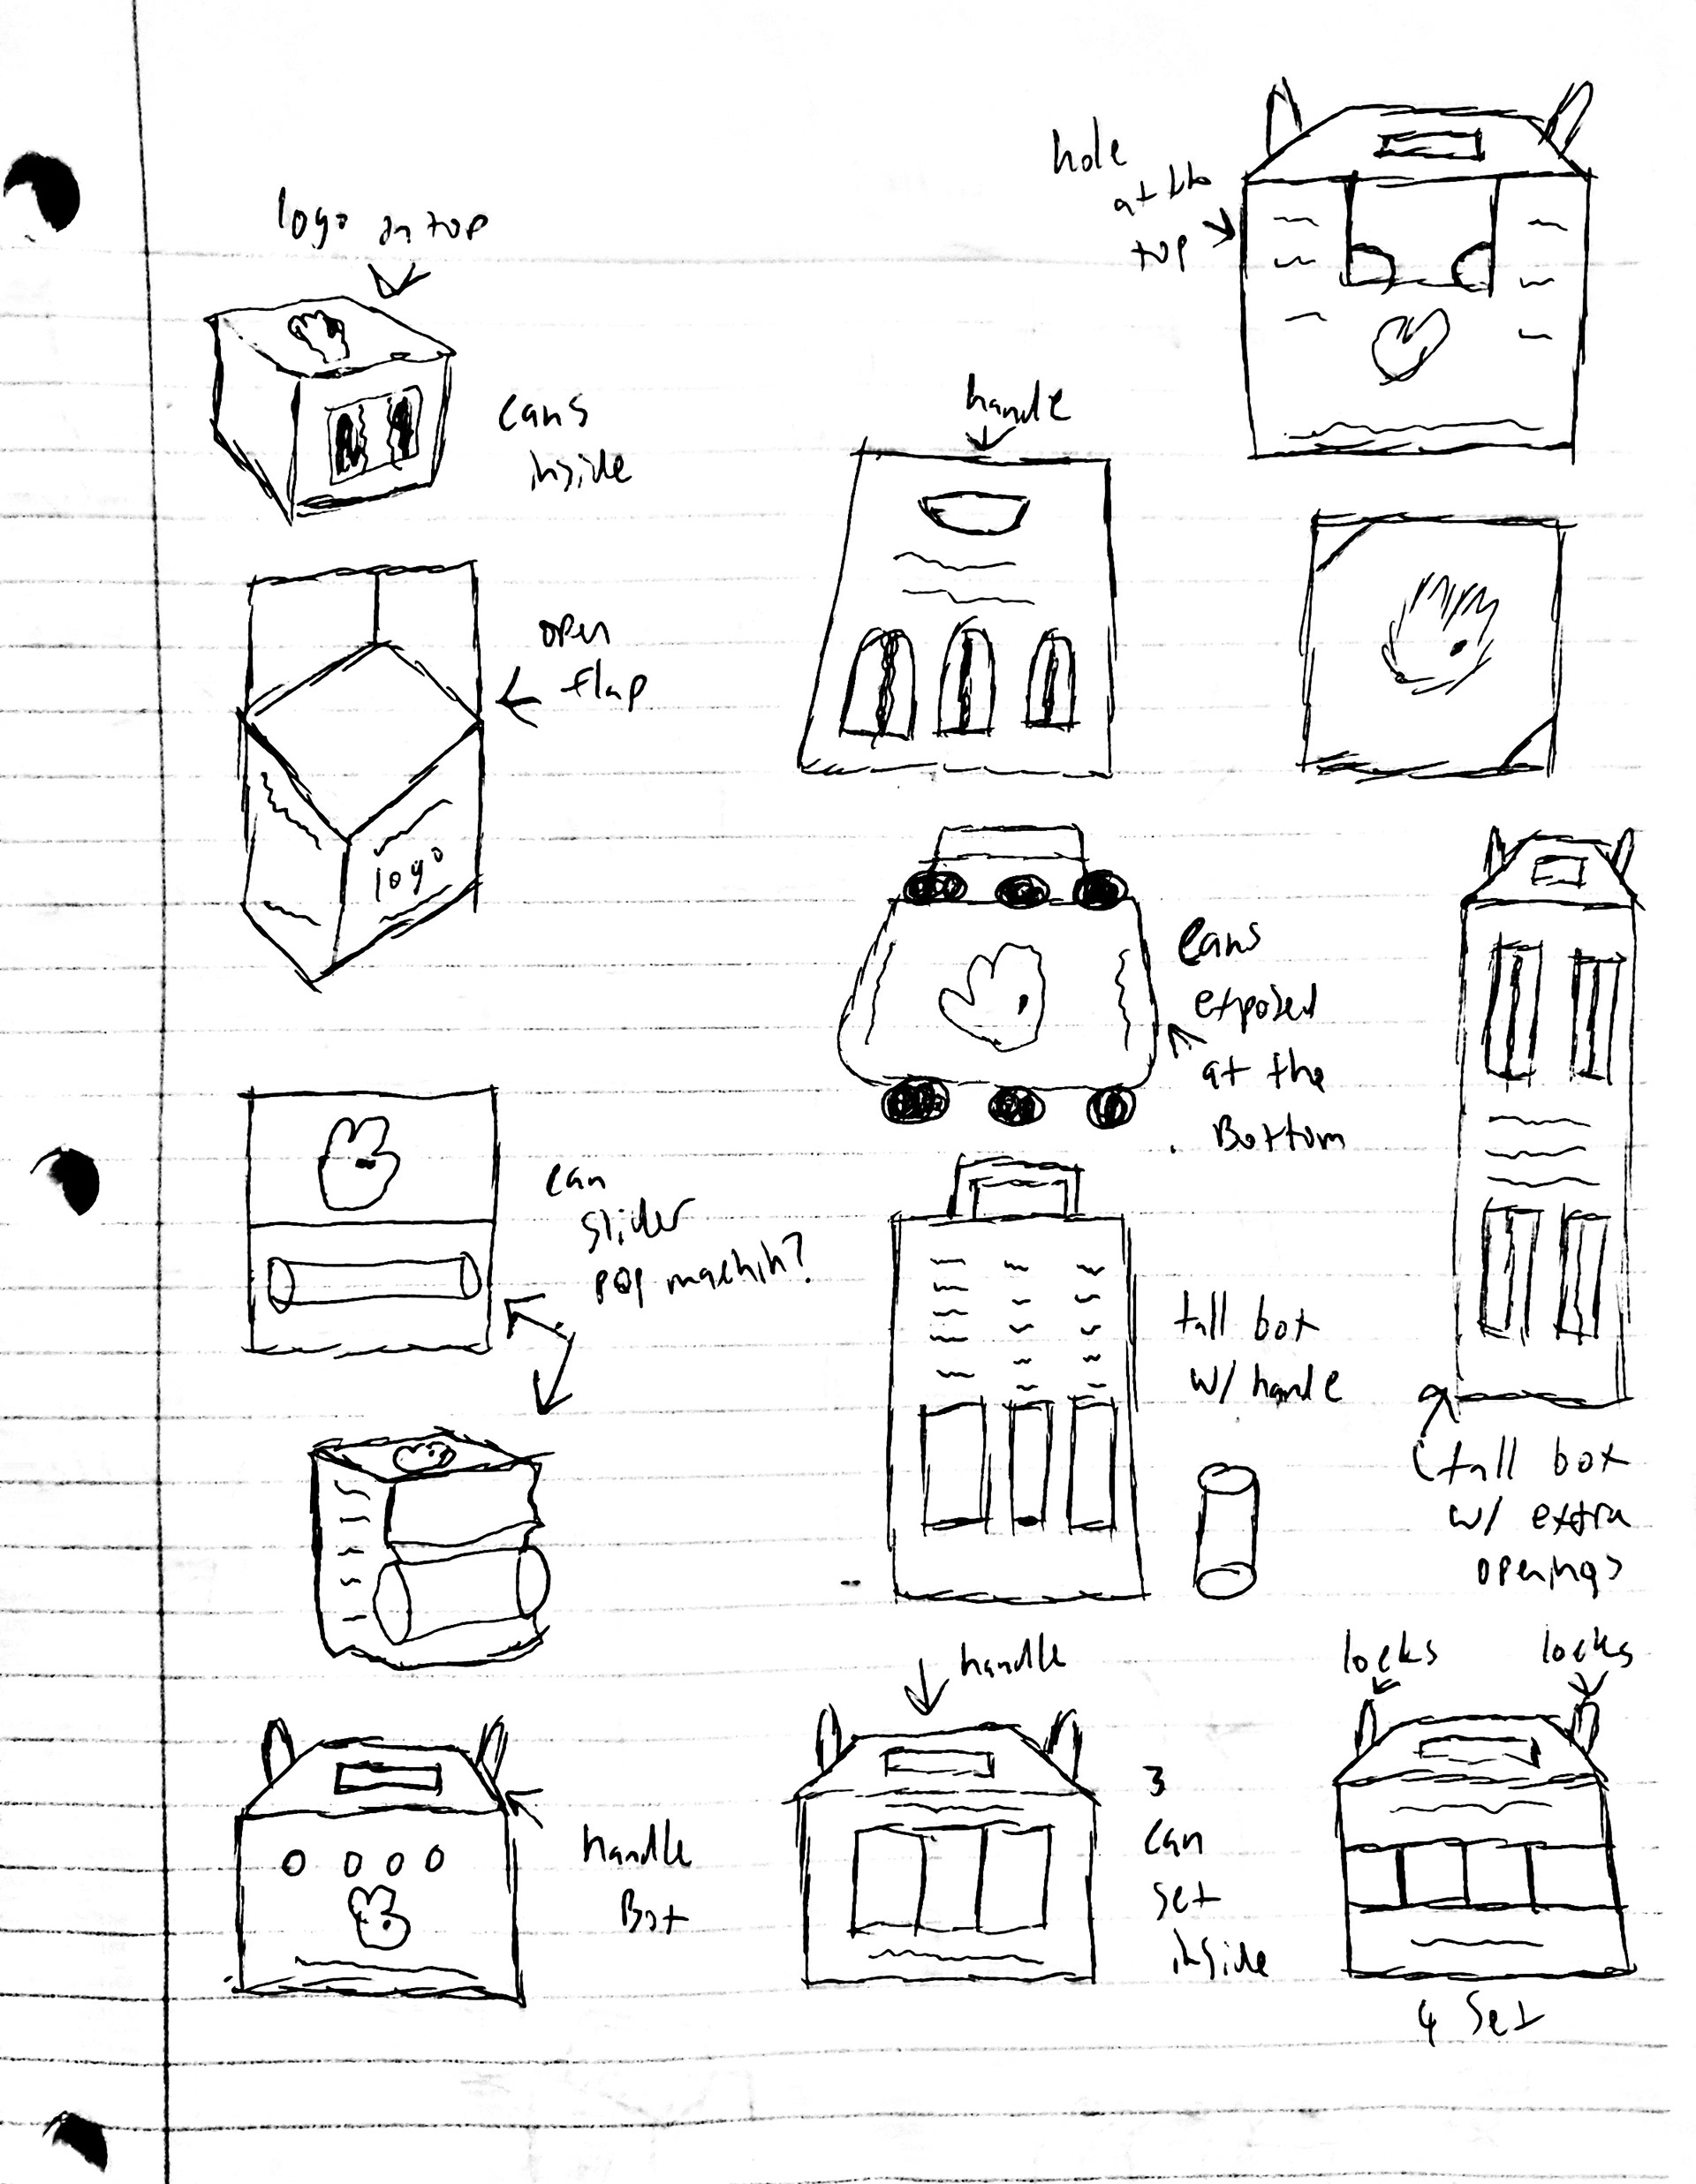 logo on top
cans
inside
open
flap
logo
can
slider
pop machin?
handle
Box
hole
at the
top
handle
cans
exposed
at the
Bottom
tall box
w/ handle
tall box
w/ extra
openings
handle
3
can
set
inside
locks
locks
4 Set